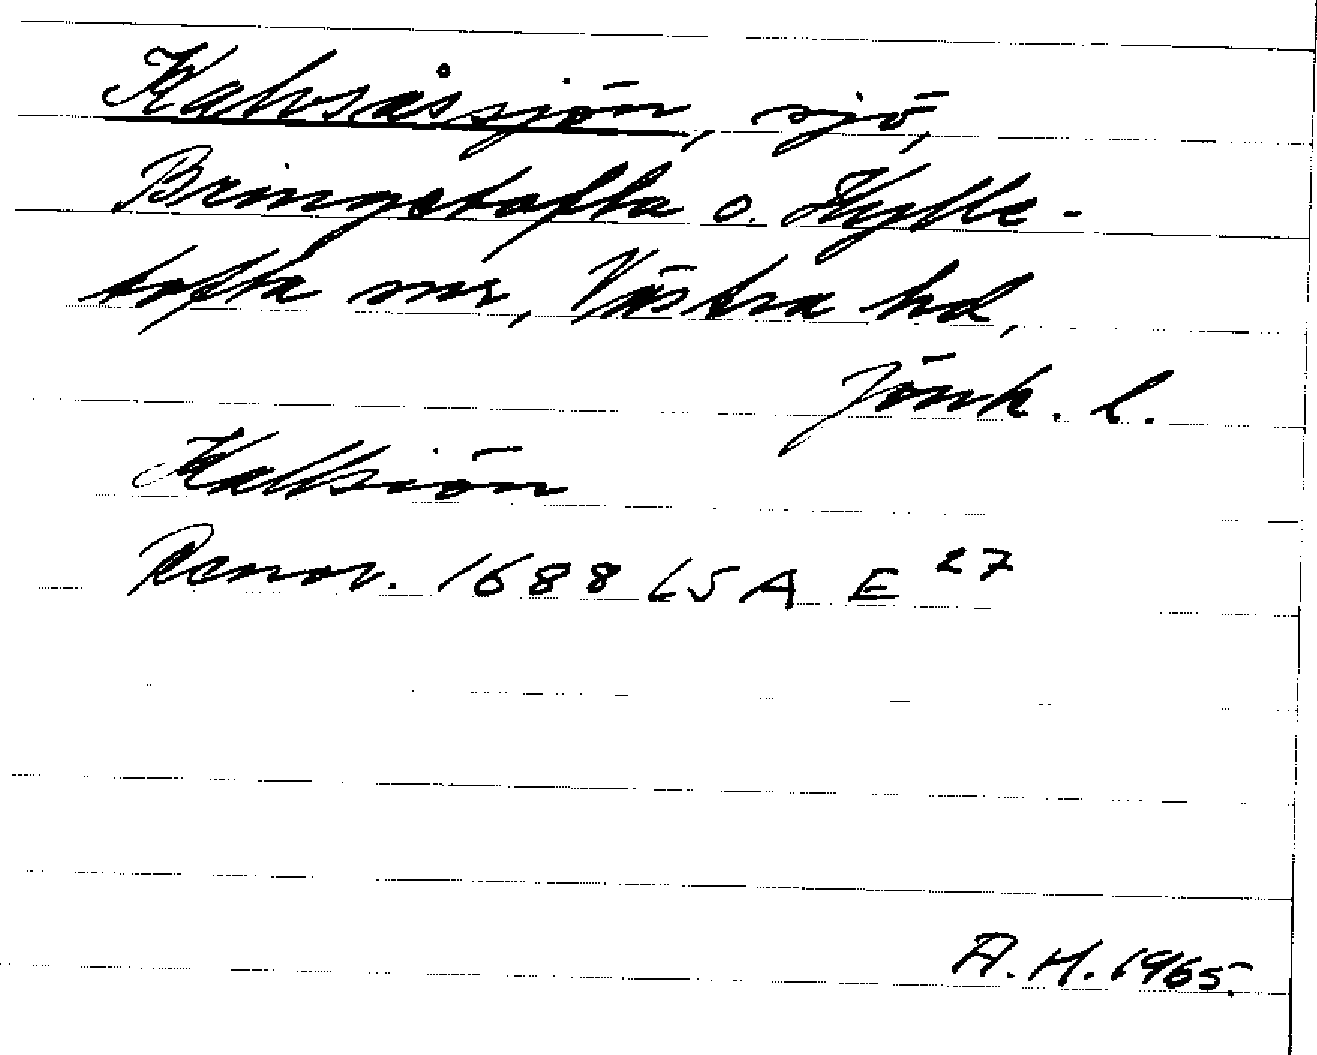 Kalvsåssjön, sjö,
Bringetofta o. Hylle-
tofta snr, Västra hd,
Jönk. l.
Kallsiön
Renov. 1688 LSA E 27
A.H. 1965.